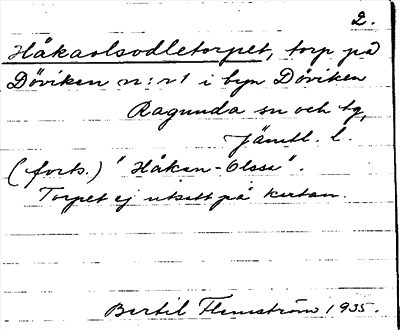 2.
Håkaolsodletorpet, torp på
Döviken nr: r1 i byn Döviken
Ragunda sn och tg,
Jämtl. l.
(forts.) "Håkan-Olssa".
Torpet ej utsatt på kartan.
Bertil Flemström 1935.